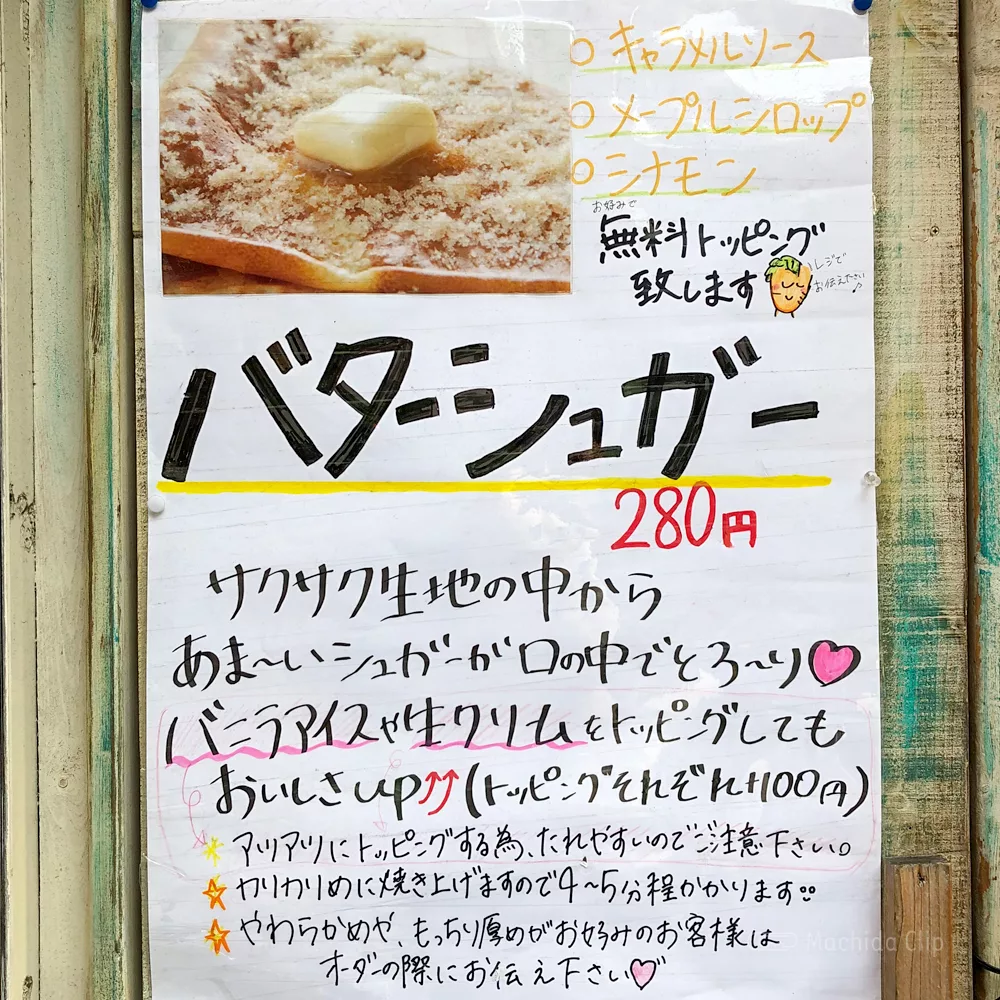 ○ キャラメルソース
○ メープルシロップ
○ シナモン
お好みで
無料トッピング
致します
レジで
お伝えください♪
バターシュガー
280円
サクサク生地の中から
あま〜いシュガーが口の中でとろ〜り♡
バニラアイスや生クリームをトッピングしても
おいしさup⤴⤴(トッピングそれぞれ+100円)
☆ アツアツにトッピングする為、たれやすいのでご注意下さい。
☆ カリカリめに焼き上げますので4〜5分程かかります
☆ やわらかめや、もっちり厚めがお好みのお客様は
オーダーの際にお伝え下さい♡
Machida Clip